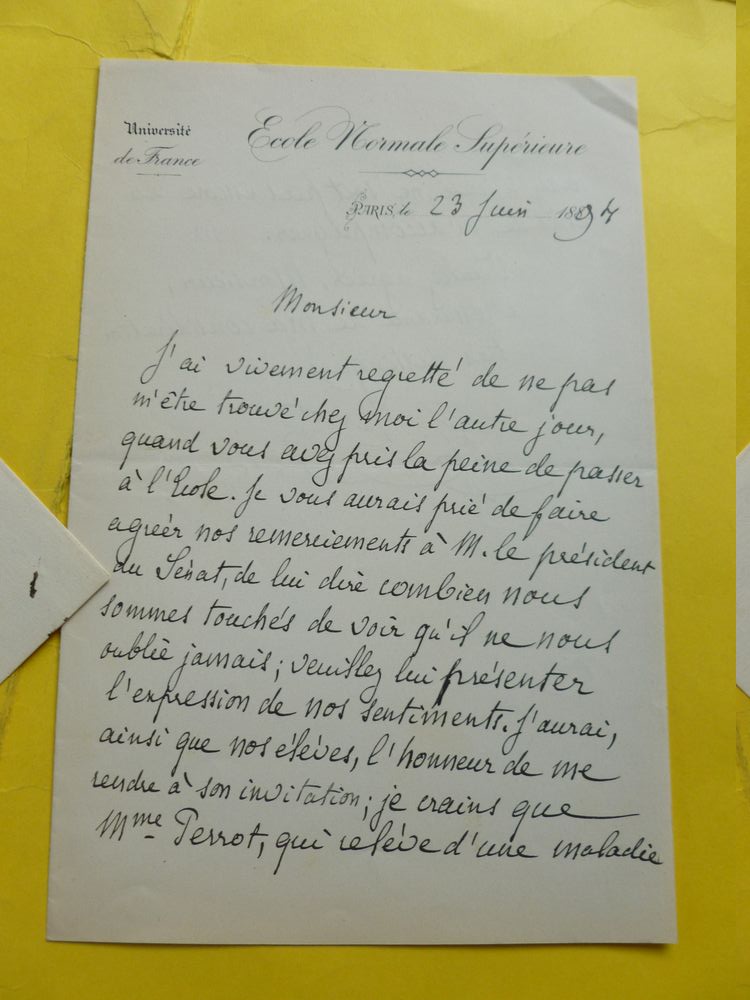 Université
de France
Ecole Normale Supérieure
PARIS, le 23 Juin 1894
Monsieur
J'ai vivement regretté de ne pas
m'être trouvé chez moi l'autre jour,
quand vous avez pris la peine de passer
à l'Ecole. Je vous aurais prié de faire
agréer nos remerciements à M. le président
du Sénat, de lui dire combien nous
sommes touchés de voir qu'il ne nous
oublie jamais; veuillez lui présenter
l'expression de nos sentiments. J'aurai,
ainsi que nos élèves, l'honneur de me
rendre à son invitation; je crains que
Mme Perrot, qui relève d'une maladie